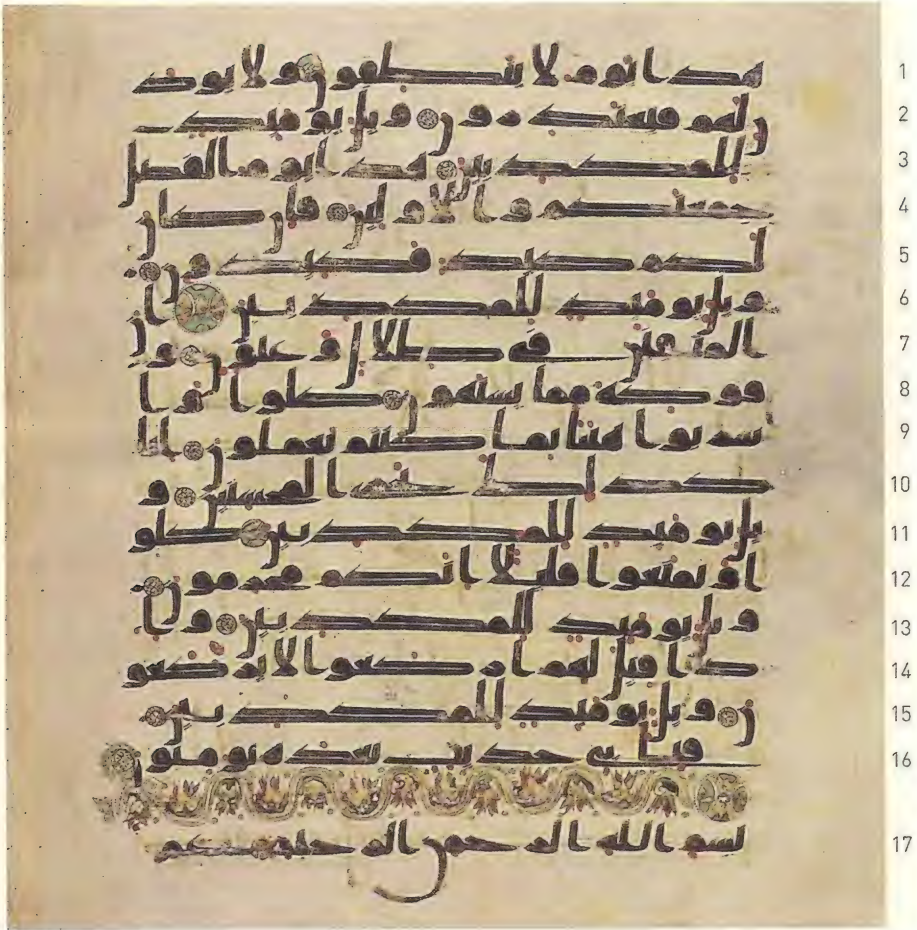 هذا يوم لا ينطقون ولا يوذ 1
ن لهم فيعتذرون ويل يوميذ 2
للمكذبين هذا يوم الفصل 3
جمعنكم والاولين فان كان 4
لكم كيد فكيدون 5
ويل يوميذ للمكذبين ان 6
المتقين في ظلل وعيون و 7
فوكه مما يشتهون كلوا وا 8
شربوا هنيا بما كنتم تعملون انا 9
كذلك نجزي المحسنين و 10
يل يوميذ للمكذبين كلو 11
ا وتمتعوا قليلا انكم مجرمون 12
ويل يوميذ للمكذبين وا 13
ذا قيل لهم اركعوا لا يركعو 14
ن ويل يوميذ للمكذبين 15
فباي حديث بعده يومنون 16
بسم الله الرحمن الرحيم 17